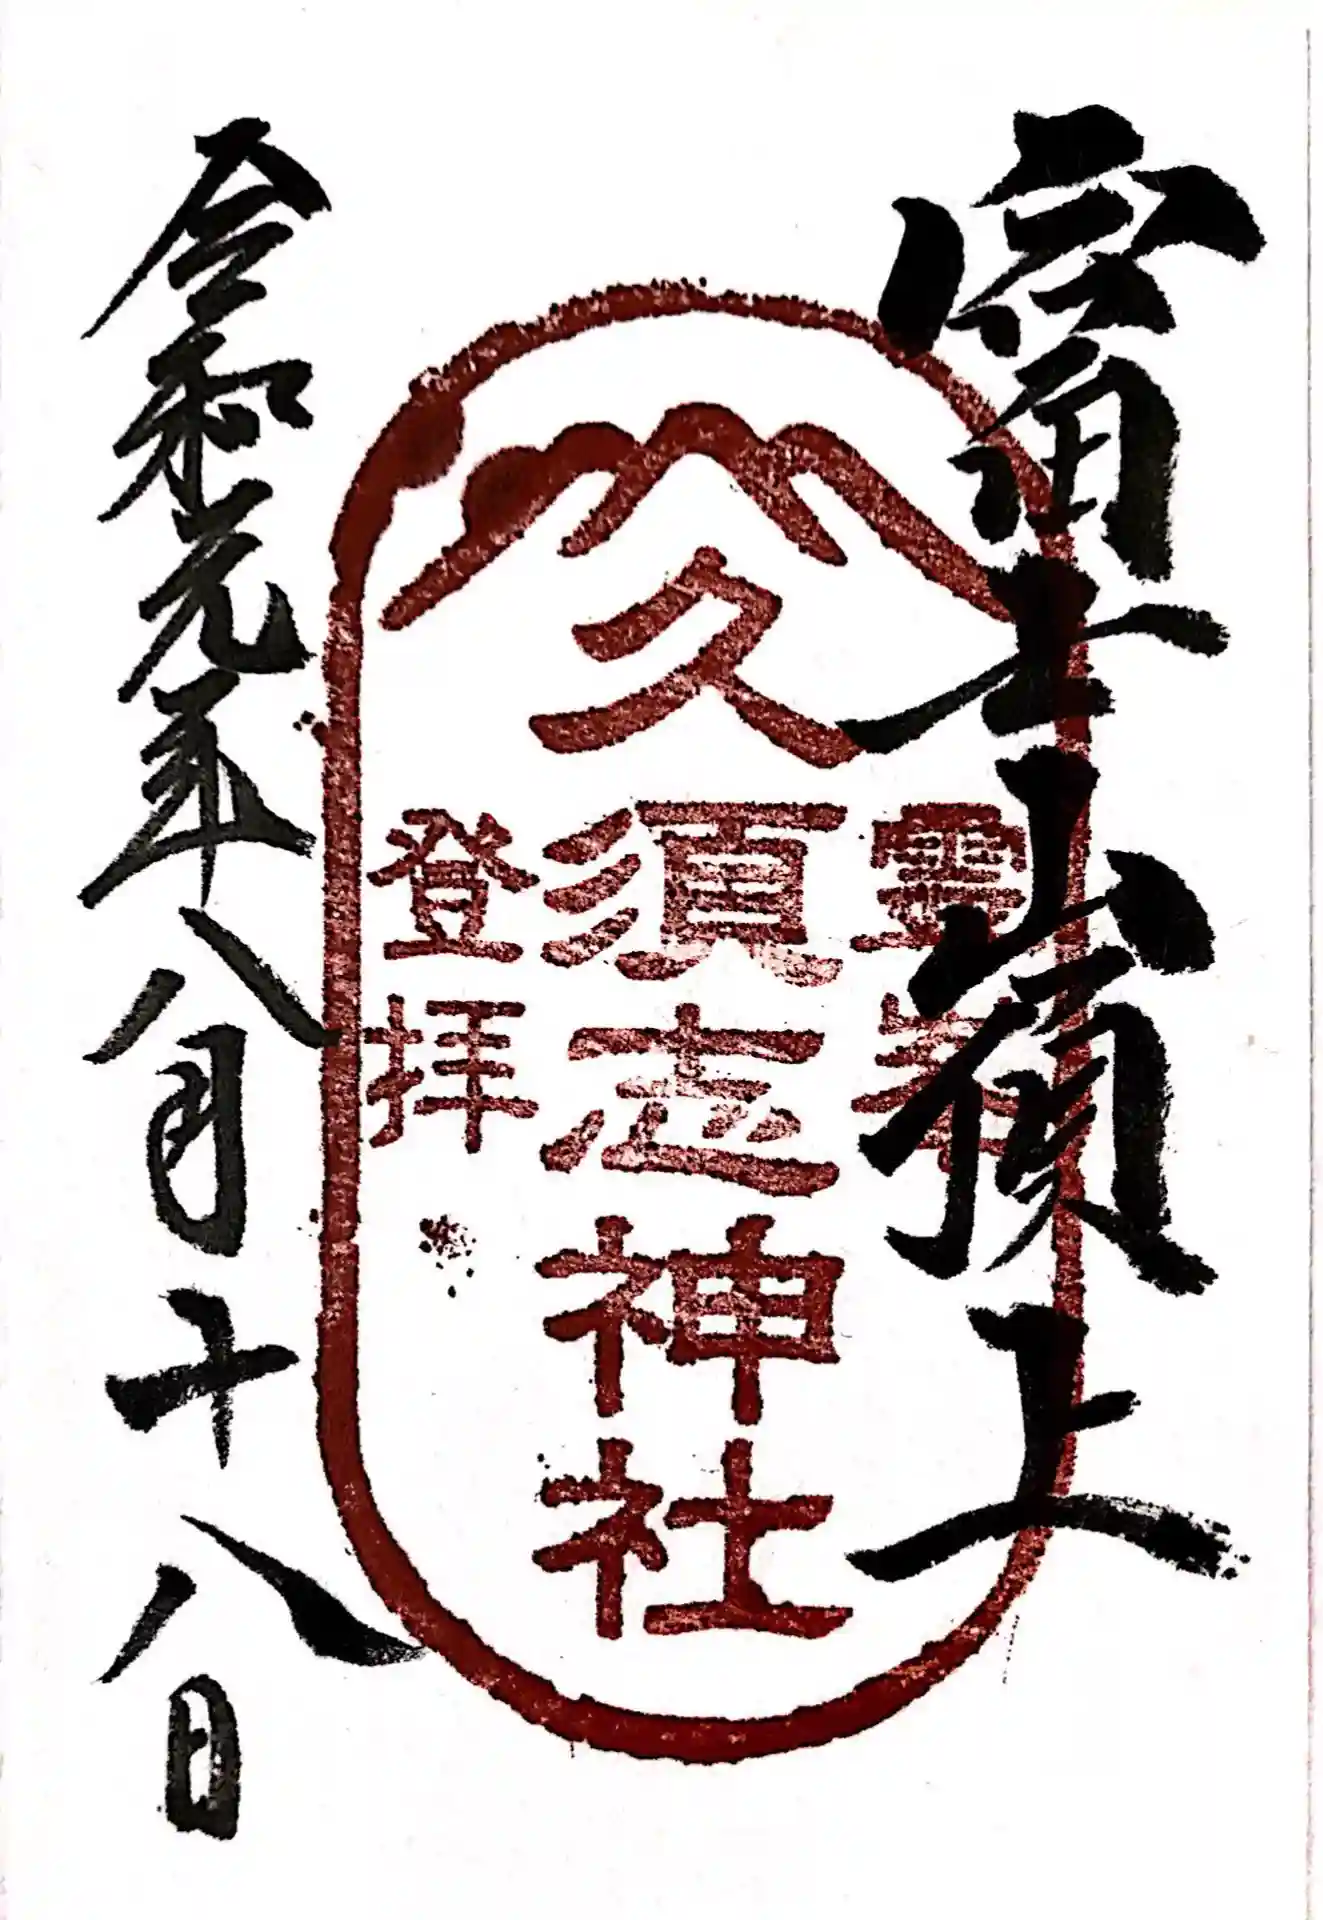 富士山頂上
霊峯
久須志神社
登拝
令和元年八月十八日